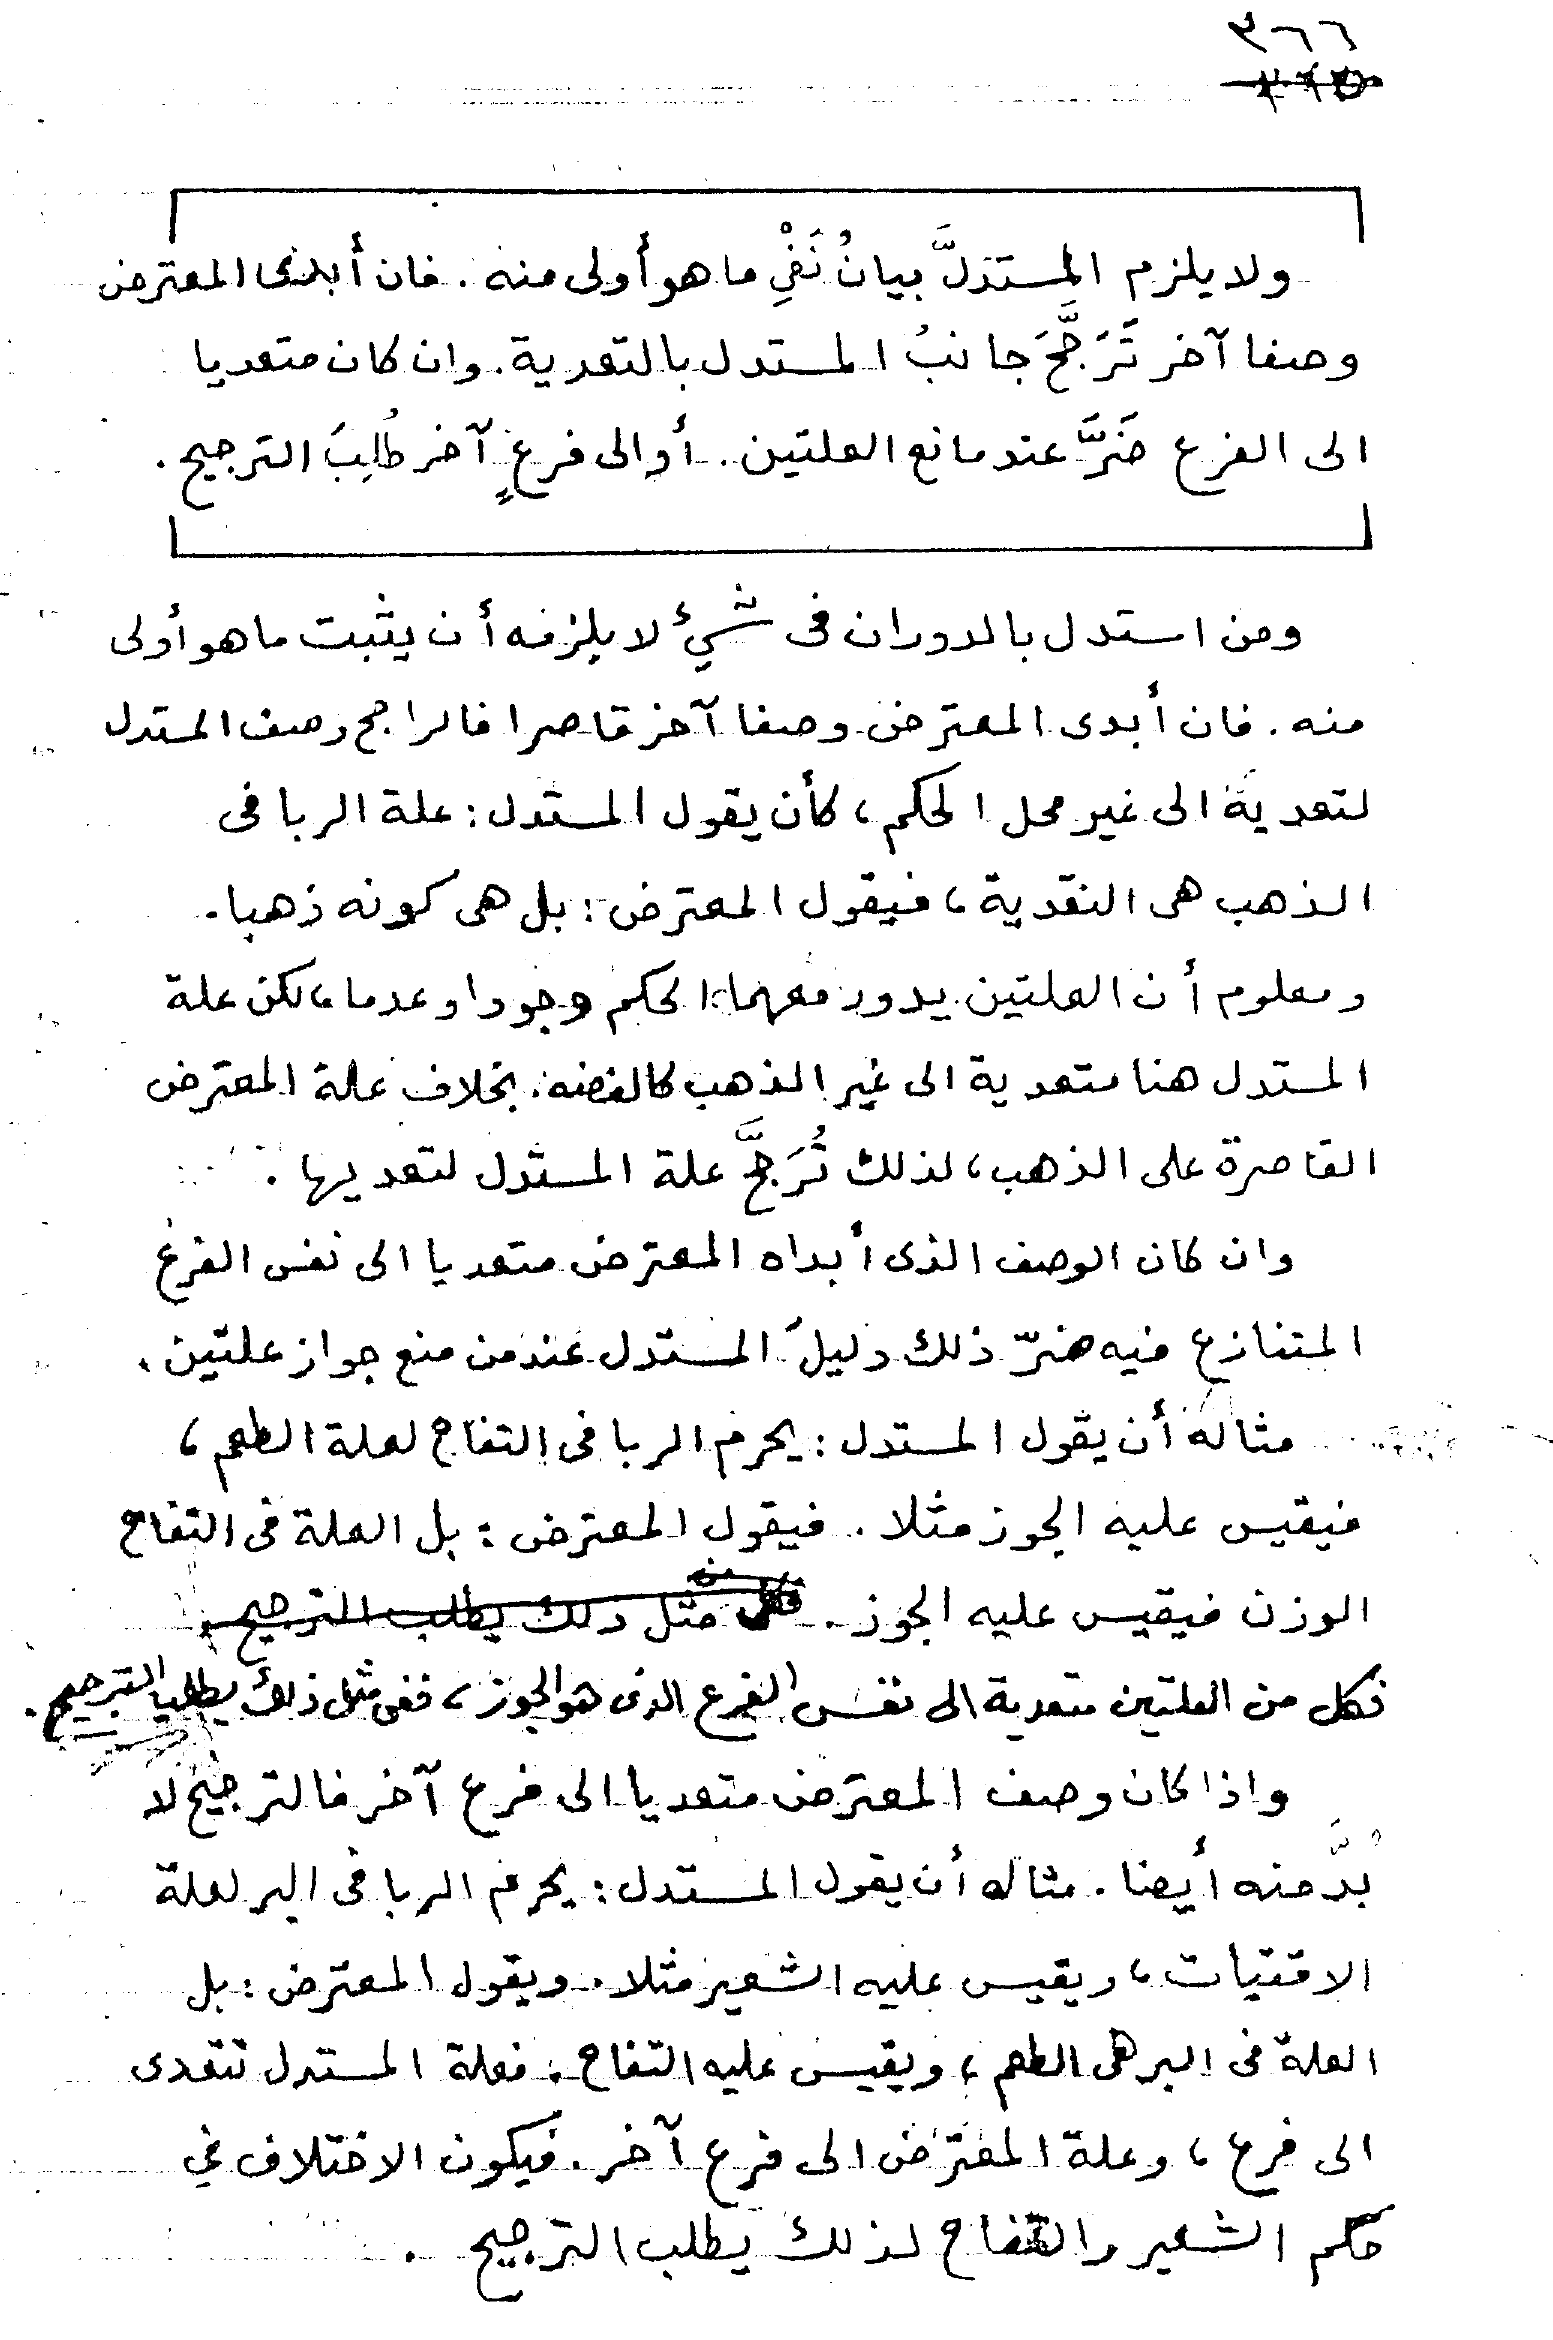 ٣٦٦
ولا يلزم المستدلَّ بيانُ نَفْيِ ما هو أولى منه . فان أبدى المعترض
وصفا آخر تَرَجَّحَ جانبُ المستدل بالتعدية . وان كان متعديا
الى الفرع ضَرَّ عند مانع العلتين . أو الى فرعٍ آخر طُلِبَ الترجيح .
ومن استدل بالدوران فى شيئ لا يلزمه أن يثبت ما هو أولى
منه . فان أبدى المعترض وصفا آخر قاصرا فالراجح وصف المستدل
لتعدية الى غير محل الحكم ، كأن يقول المستدل : علة الربا فى
الذهب هى النقدية ، فيقول المعترض : بل هى كونه ذهبا .
ومعلوم أن العلتين يدور معهما الحكم وجودا وعدما ، لكن علة
المستدل هنا متعدية الى غير الذهب كالفضه . بخلاف علة المعترض
القاصرة على الذهب ، لذلك تُرَجَّح علة المستدل لتعديها .
وان كان الوصف الذى أبداه المعترض متعديا الى نفس الفرع
المتنازع فيه ضرّ ذلك دليلَ المستدل عند من منع جواز علتين .
مثاله أن يقول المستدل : يحرم الربا فى التفاح لعلة الطعم ،
فيقيس عليه الجوز مثلا . فيقول المعترض : بل العلة فى التفاح
الوزن فيقيس عليه الجوز . مثل ذلك يطلب الترجيح .
فكل من العلتين متعدية الى نفس الفرع الذى هو الجوز ، ففى مثل ذلك يطلب الترجيح .
واذا كان وصف المعترض متعديا الى فرع آخر فالترجيح لا
بُدَّ منه أيضا . مثاله أن يقول المستدل : يحرم الربا فى البر لعلة
الاقتيات ، ويقيس عليه الشعير مثلا . ويقول المعترض : بل
العلة فى البر هى الطعم ، ويقيس عليه التفاح . فعلة المستدل تتعدى
الى فرع ، وعلة المعترض الى فرع آخر . فيكون الاختلاف في
حكم الشعير والتفاح لذلك يطلب الترجيح .